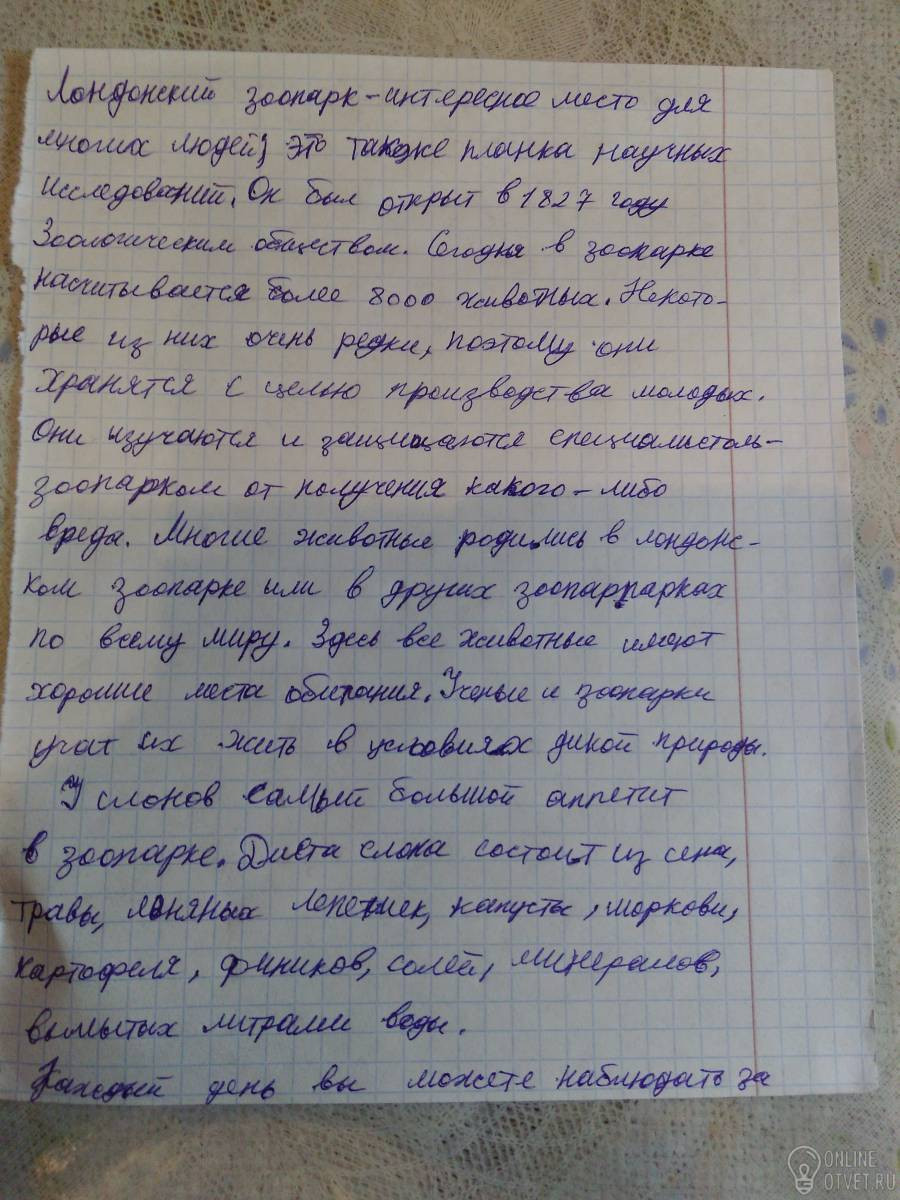 Лондонский зоопарк-интересное место для
многих людей, это также планка научных
исследований. Он был открыт в 1827 году
Зоологическим обществом. Сегодня в зоопарке
насчитывается более 8000 животных. Некото-
рые из них очень редки, поэтому они
хранятся с целью производства молодых.
Они изучаются и защищаются
зоопарком от получения какого-либо
вреда. Многие животные родились в лондонс-
ком зоопарке или в других зоопарпарках
по всему миру. Здесь все животные имеют
хорошие места обитания. Ученые и зоопарки
учат их жить в условиях дикой природы.
У слонов самый большой аппетит
в зоопарке. Диета слона состоит из сена,
травы, льняных лепешек, капусты, моркови,
картофеля, фиников, солей, минералов,
вымытых литрами воды.
Каждый день вы можете наблюдать за
ONLINE
OTVET.RU